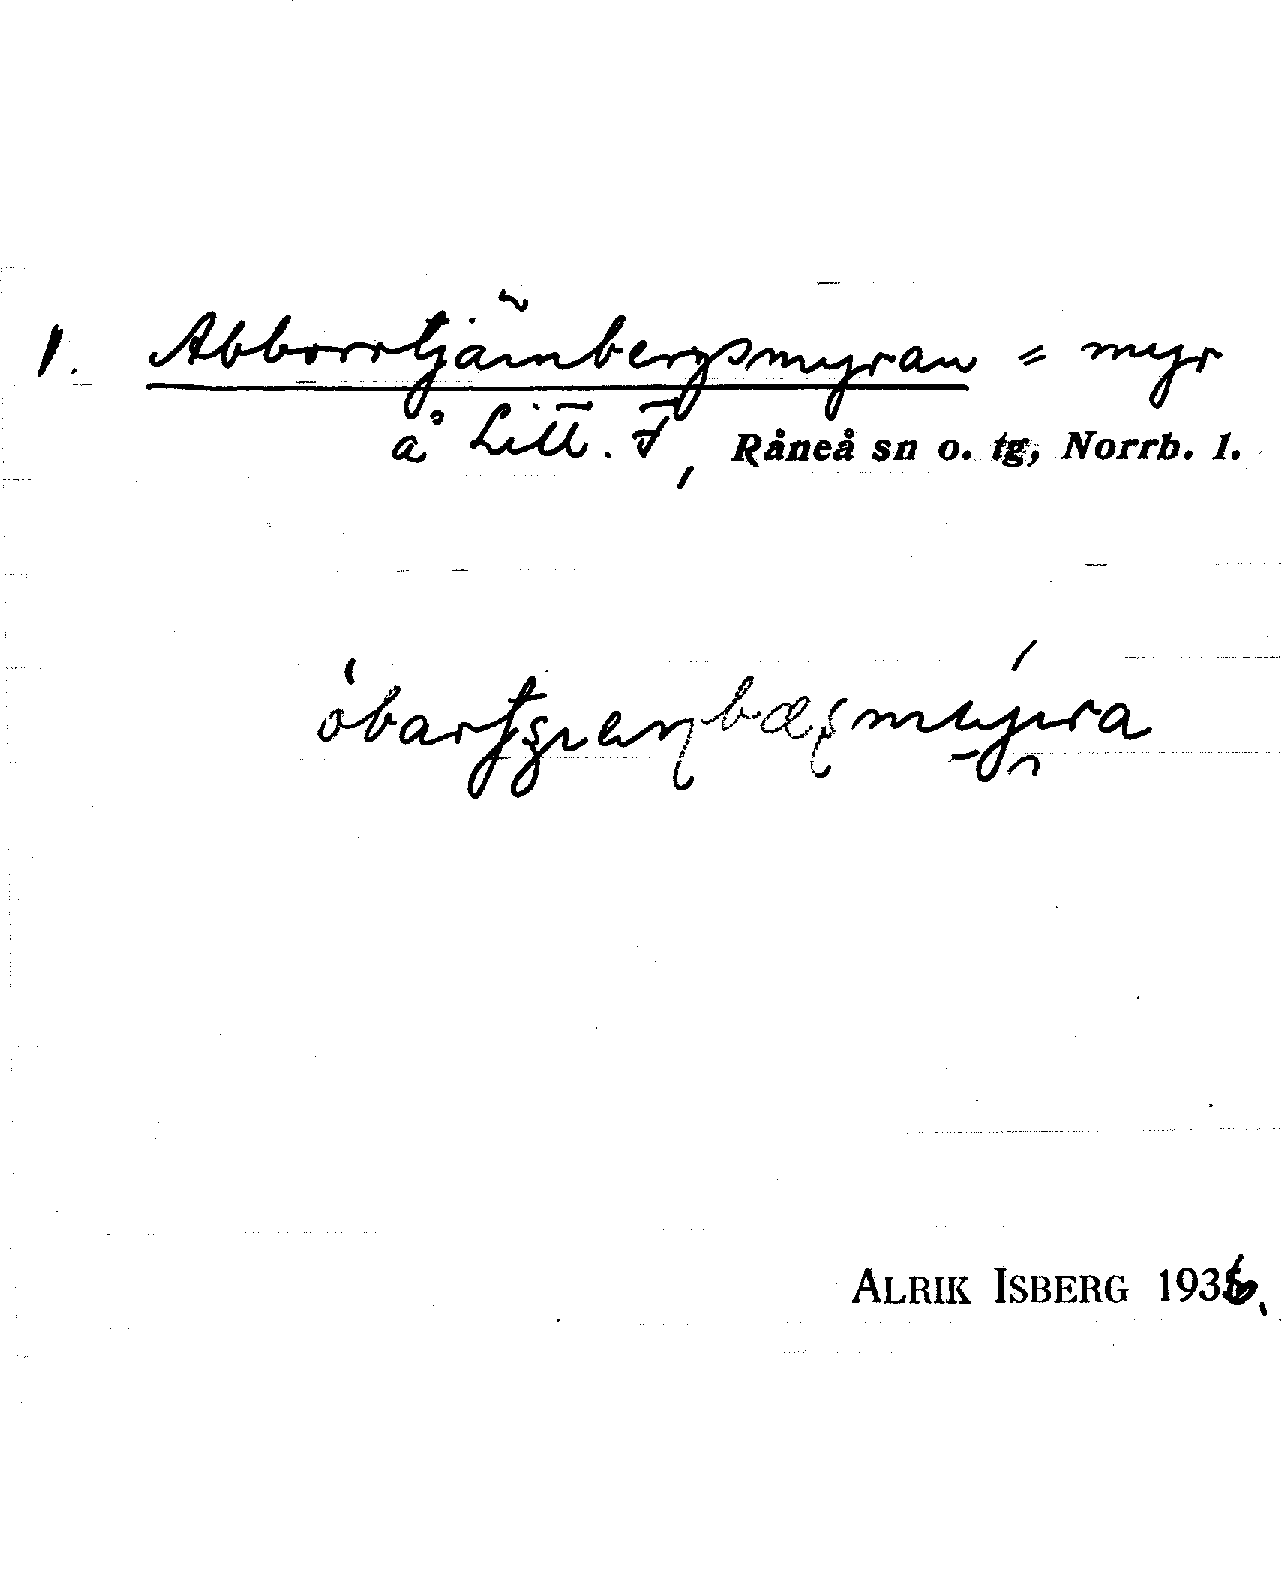 1. Abborrtjärnbergsmyran = myr
å Litt. F, Råneå sn o. tg, Norrb. l.
ALRIK ISBERG 1936.